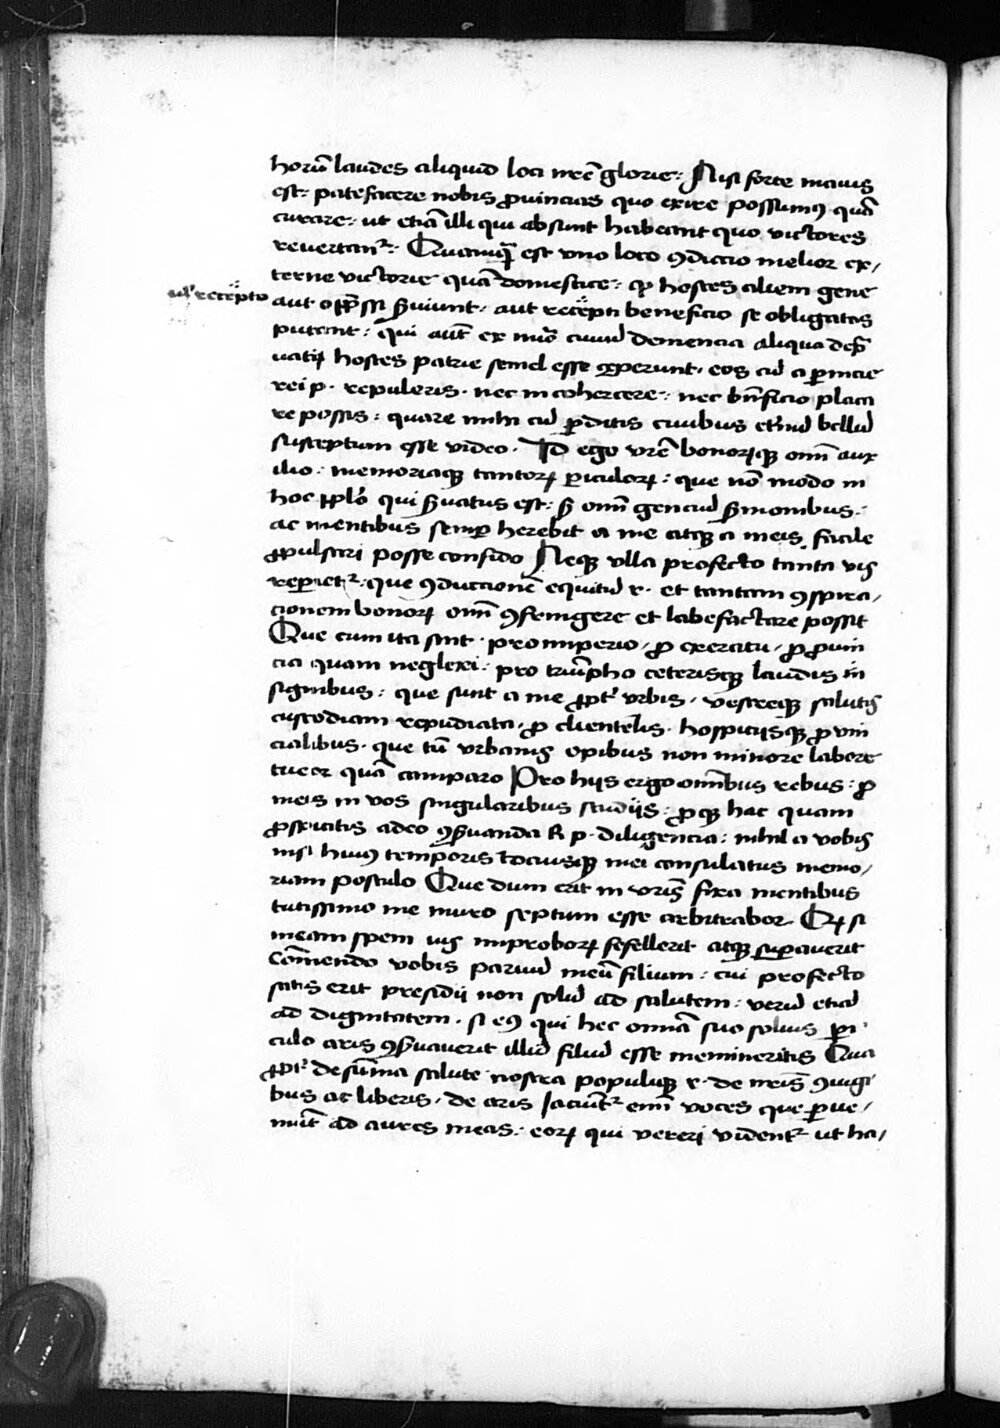 horū laudes aliquid loci nrē glorie: Nisi forte maius
est: patefacere nobis ꝓuincias quo exire possimꝰ quā
curare: ut etiā illi qui absunt habeant quo victores
revertant᷑: Quamꝙ̄ est vno loco ꝯdicio melior ex/
terne victorie quā domestice: ꝙ hostes aliem gene
ul' recepto
aut opp̄ssi s̄uiunt. aut recepti beneficio se obligatos
putant: qui aūt ex nūo ciuiū demencia aliqua dep̄
uati hostes patrie semel esse ceperunt. eos cū a ꝑnicie
rei p. repuleris. nec in cohercere: nec bn̄ficio placa
re possis: quare mihi cū ꝑditis ciuibus et̄nū bellū
susceptum esse video. Id ego vrē bonorꝫqꝫ om̄ aux
ilio: memoriaqꝫ tantorꝫ ꝑiculorꝫ: que nō modo in
hoc pp̄lo qui s̄uatus est: s̄ om̄ genciū s̄monibus:
ac mentibus semꝑ herebit a me atqꝫ a meis facile
ꝓpulsari posse confido Neqꝫ vlla profecto tanta vis
reꝑiet᷑: que ꝯduccionē equitū r. et tantam ꝯspira/
cionem bonorꝫ om̄ ꝯfringere et labefactare possit
Que cum ita sint. pro imperio. ꝓ exercitu. ꝓ ꝓuin
cia quam neglexi: pro triūpho ceterisqꝫ laudis in
signibus: que sunt a me ꝓpt᷑ vrbis. vestreqꝫ salutis
custodiam repudiata. ꝓ clientelis. hospicijsqꝫ ꝓvin
cialibus. que tn̄ vrbanis opibus non minore labore
tueor quā comparo Pro hijs ergo omībus rebus: ꝓ
meis in vos singularibus studijs: ꝓqꝫ hac quam
ꝓspicitis adeo ꝯs̄uanda R p. diligencia: nihil a vobis
nisi huiꝰ temporis tociusqꝫ mei consulatus memo/
riam postulo Que dum erit in vrīs fixa mentibus
tutissimo me muro septum esse arbitrabor. Qꝫ si
meam spem vis improborꝫ fefellerit atqꝫ suꝑauerit
Cōmendo vobis paruū meū filium: cui profecto
satis erit presidij non solū ad salutem: verū etiā
ad dignitatem. si eꝰ qui hec omīa suo solius ꝑi
culo aris ꝯs̄uauerit illiꝰ filiū esse memineritis Qua
ꝓpt᷑ de sūma salute nostra populiqꝫ r. de nrīs ꝯiugi
bus ac liberis. de aris Jaciūt᷑ em̄ voces que ꝑue/
niūt ad aures meas: eorꝫ qui vereri vident᷑ ut ha/